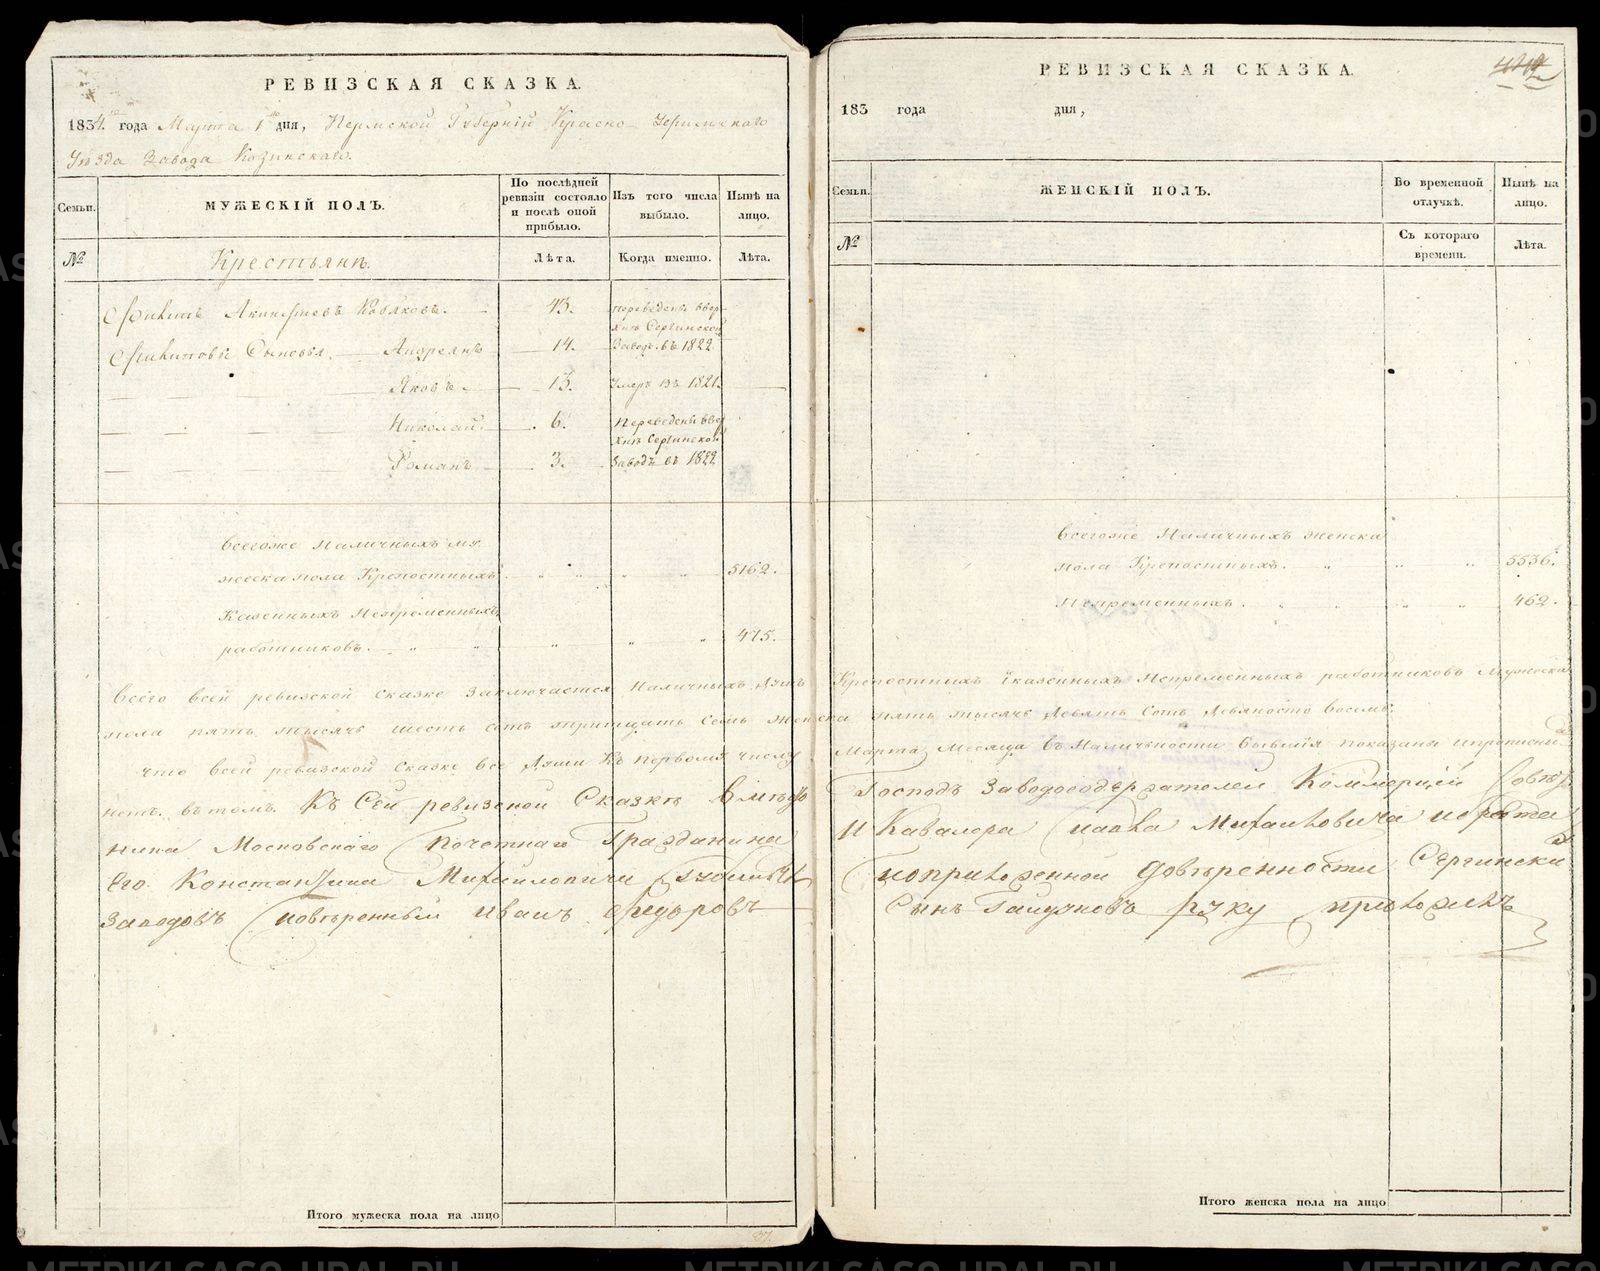 РЕВИЗСКАЯ СКАЗКА.
1834 года Марта 1 дня, Пермской Губернiи Красно Уфимскаго
Уѣзда Завода Козинскаго.
Семьи.
МУЖЕСКIЙ ПОЛЪ.
По послѣдней ревизiи состояло и послѣ оной прибыло.
Изъ того числа выбыло.
Нынѣ на лицо.
№
Крестьянѣ.
Лѣта.
Когда именно.
Лѣта.
43. переведенъ ввер-
хнѣ Сергинской
Сыновья. Андреянъ 14. Заводъ въ 1822
Яковъ 13. Умеръ въ 1821.
Николай 6. Переведены ввер
хнѣ Сергинской
Романъ 3. Заводъ въ 1822
Всегоже Наличныхъ му
жеска пола Крепостныхъ 5162.
Казенныхъ Непременныхъ
работниковъ. 475.
Всего всей ревизской сказке Заключается Наличныхъ душъ
пола пять тысячь шесть сотъ тритцать Семь женска
что всей ревизской Сказке все души Къ первому числу
нетъ. въ томъ. Къ Сей ревизской Сказкѣ Вмѣсто
Московскаго Почетнаго Гражданина
Его Константина Михайловича Губина
Заводовъ Повѣренный Иванъ Федоровъ
Итого мужеска пола на лицо
РЕВИЗСКАЯ СКАЗКА.
183 года дня,
Семьи.
ЖЕНСКIЙ ПОЛЪ.
Во временной отлучкѣ.
Нынѣ на лицо.
№
Съ котораго времени.
Лѣта.
Всегоже Наличныхъ женска
пола Крепостныхъ. 5536.
Непременныхъ. 462.
Крепостныхъ Казенныхъ Непременныхъ работниковъ Мужеска
пять тысячь девять Сотъ девяносто восемь.
Марта Месяца въ Наличности бывшiя показаны
Господъ Заводосодержателей Коммерцiи Совѣт
И Кавалера Павла Михайловича и брата
по приложенной довѣренности Сергински
Сынъ руку приложилъ
Итого женска пола на лицо